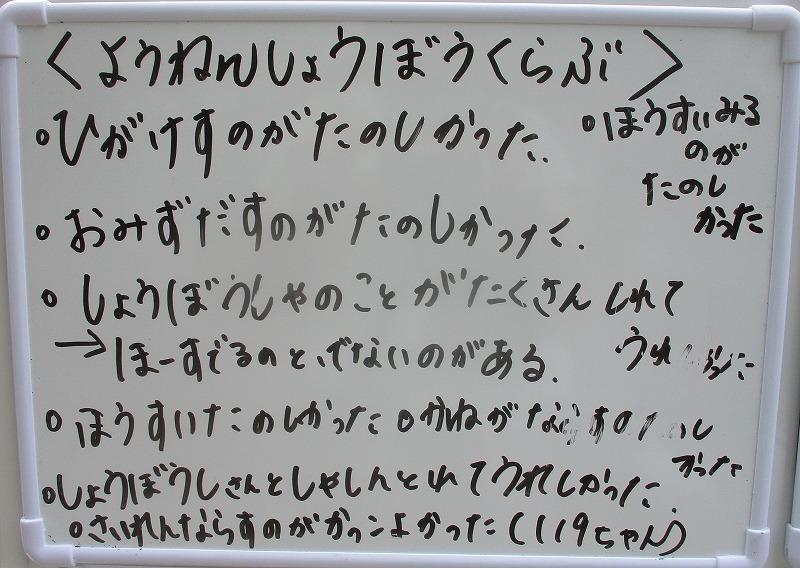 ＜ようねんしょうぼうくらぶ＞
○ひがけすのがたのしかった.
○ほうすいみる
のが
たのし
かった
○おみずだすのがたのしかった.
○しょうぼうしゃのことがたくさんしれて
うれ
→ほーすでるのと、でないのがある.
○ほうすいたのしかった ○かねがならすの
かった
○しょうぼうしさんとしゃしんとれてうれしかった.
○さいれんならすのがかっこよかった(119ちゃん)